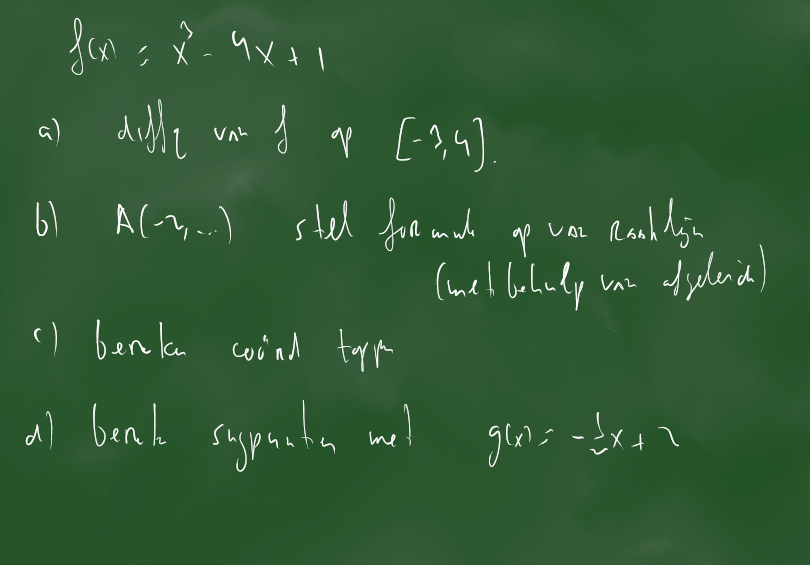 f(x) = x³ - 4x + 1
a) diffq van f op [-3,4].
b) A(-2,...) stel formule op van raaklijn
(met behulp van afgeleide)
c) bereken coörd toppen
d) bereken snijpunten met g(x) = -½x + 2